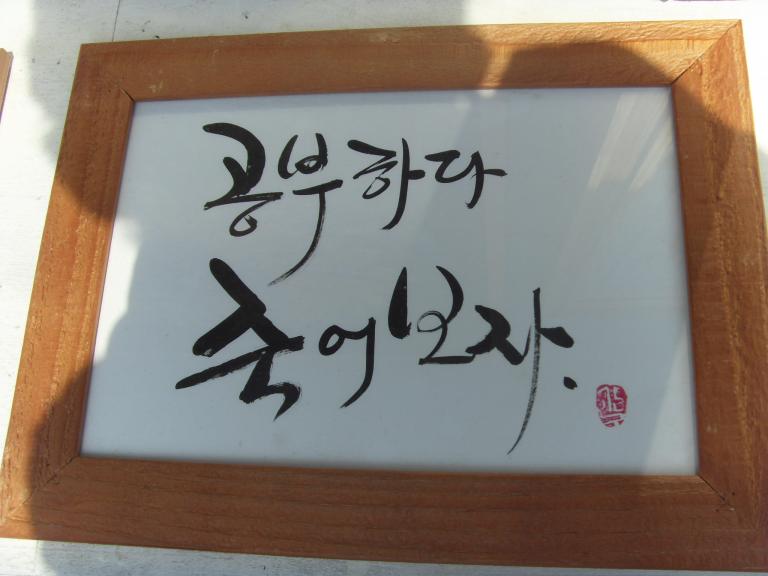 공부하다
죽어보자.